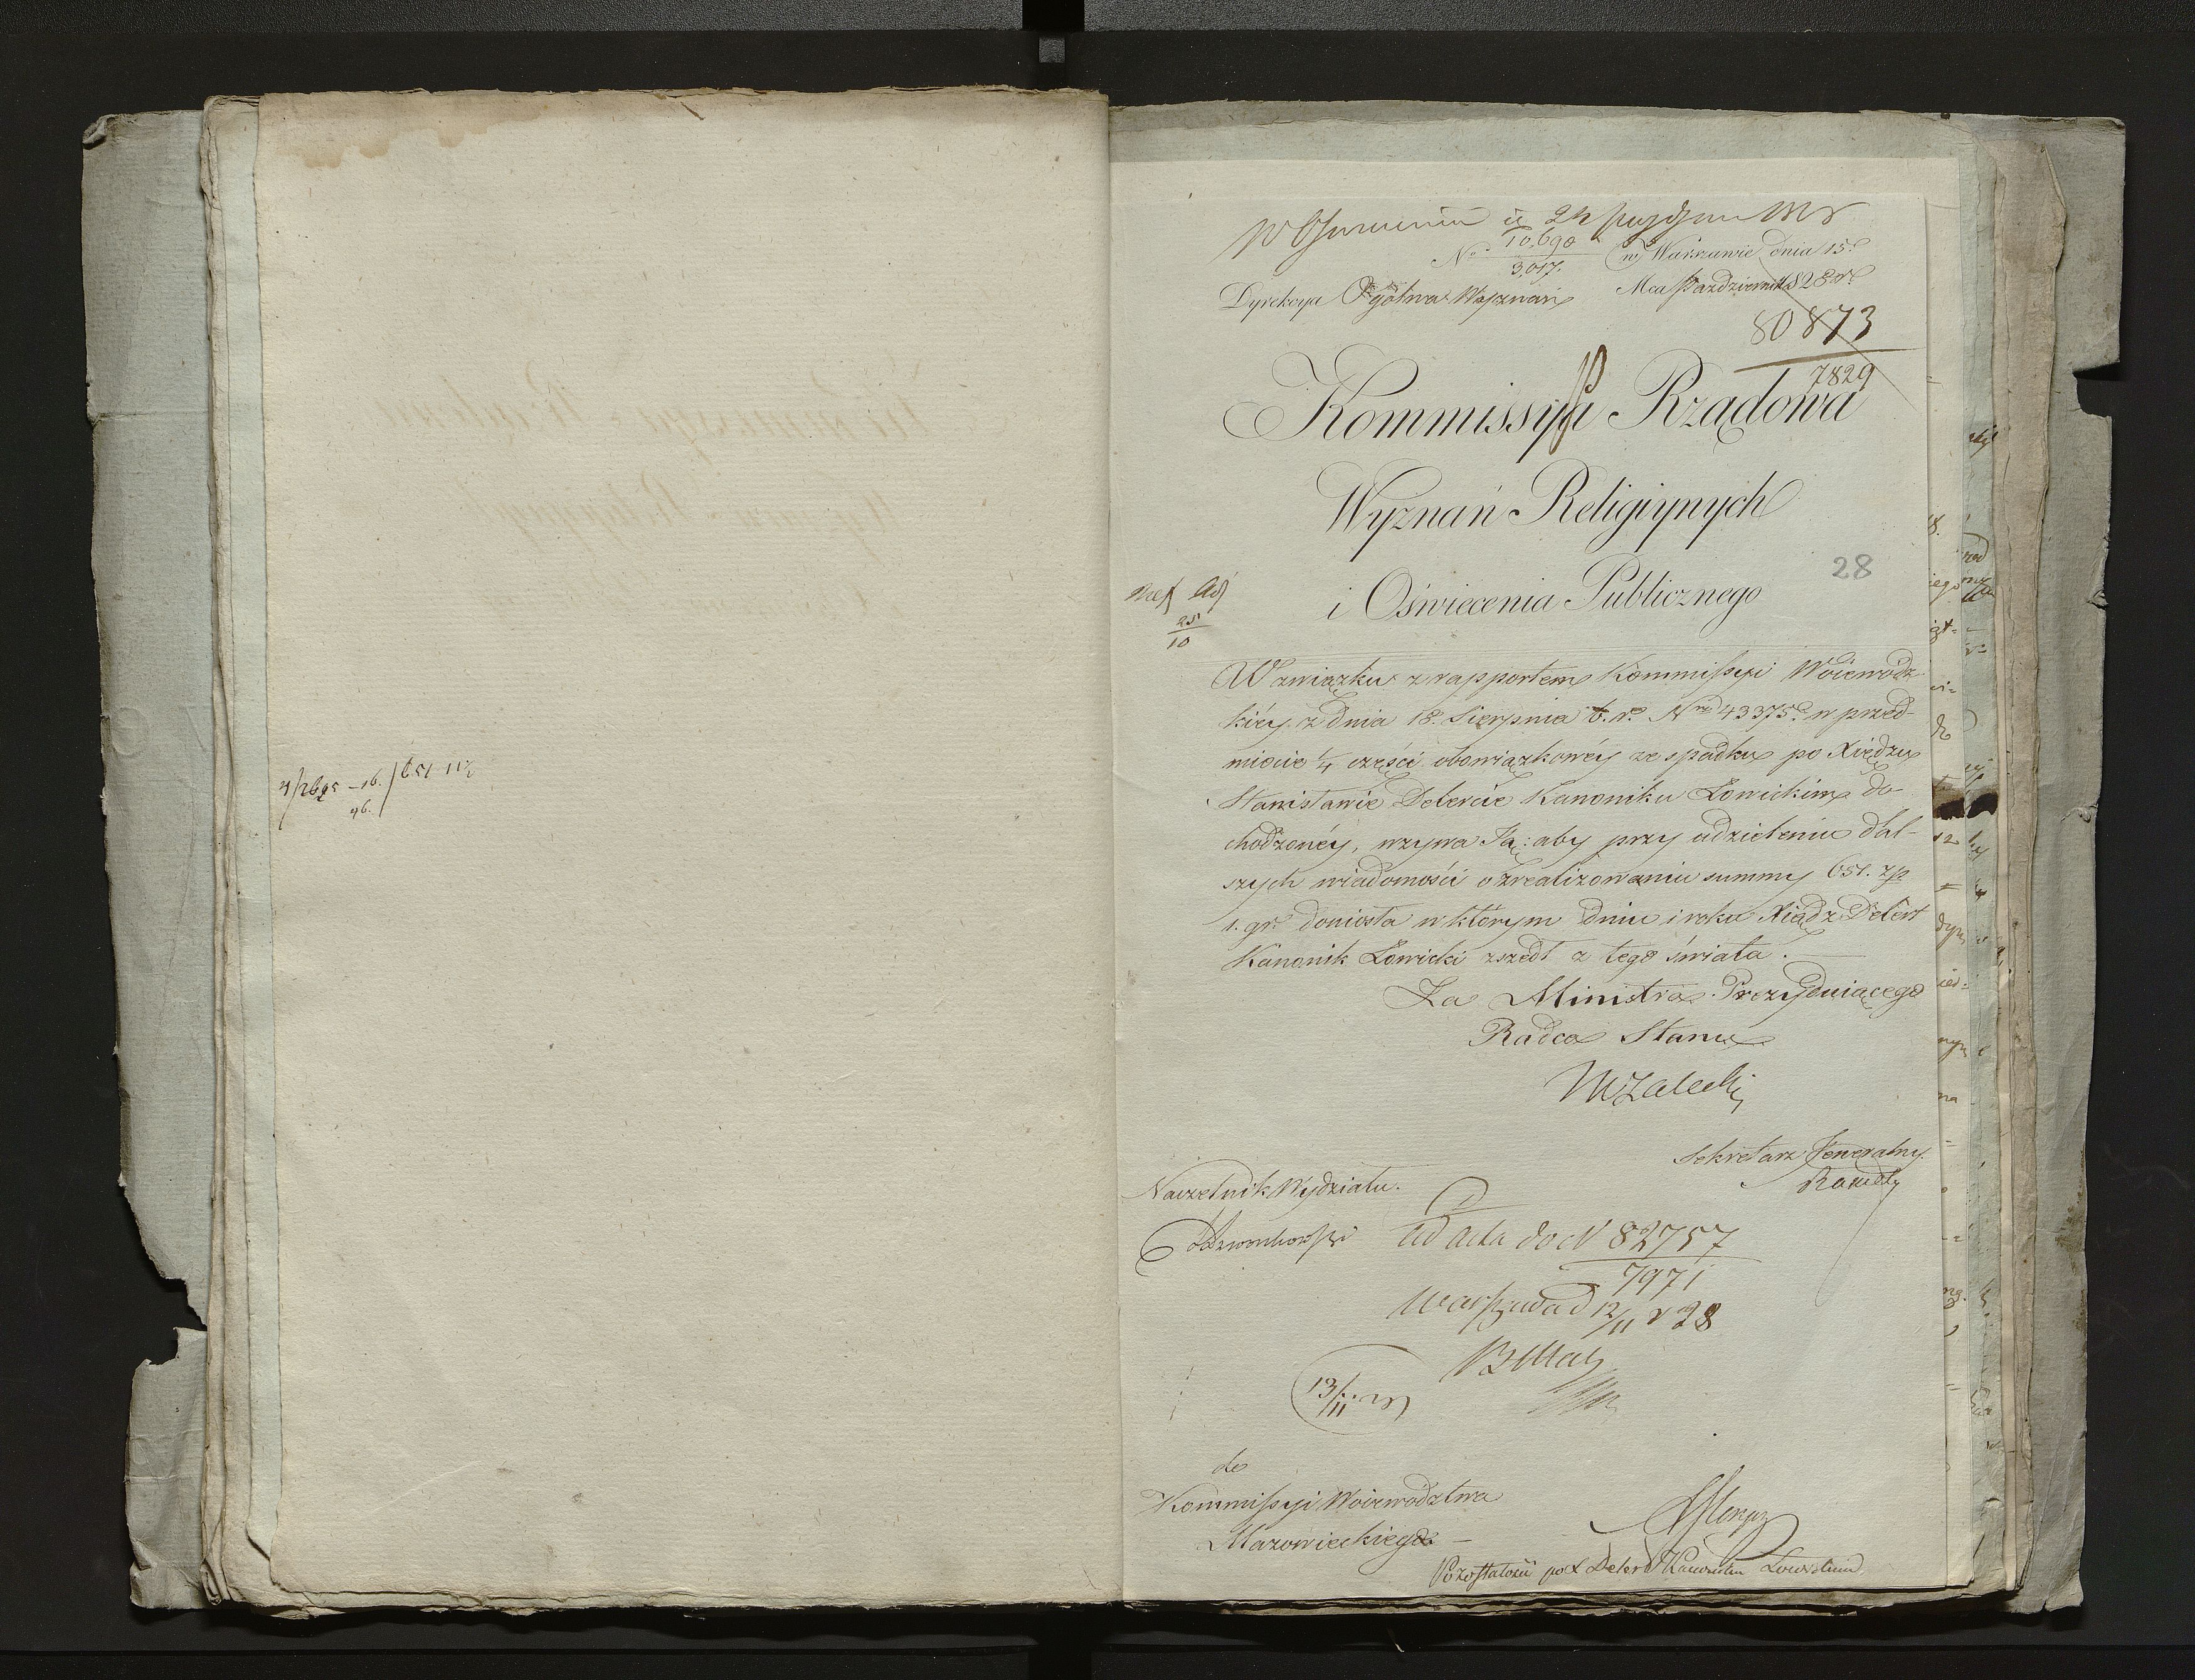 4/2695 – 16. / 651 11½
96.
24
No 10,690
3,017.
w Warszawie dnia 15o
Dyrekcya Ogólna Wyznań
Mca Października 828 r.
80873
7829
Kommissyja Rządowa
Wyznań Religiynych
28
i Oświecenia Publicznego
25
10
W związku z rapportem Kommissyi Woiewódz-
kiéy z dnia 18. Sierpnia b. r. Nro 43375. w przed-
miocie 1/4 części obowiązkowéy ze spadku po Xiędzu
Stanisławie Delercie Kanoniku Łowickim do-
chodzonéy, wzywa Ją: aby przy udzieleniu dal-
szych wiadomości o zrealizowaniu summy 651. zp
1. gr. doniosła w którym dniu i roku Xiądz Delert
Kanonik Łowicki zszedł z tego świata.
Za Ministra Prezyduiącego
Radca Stanu
MZaleski
Sekretarz Jeneralny.
Naczelnik Wydziału.
ad acta do N 82757
7971
Warszawa d 12/11 r 28
13/11
do
Kommissyi Woiewództwa
Mazowieckiego
Pozostałość po X Delert Kanoniku Łowickim